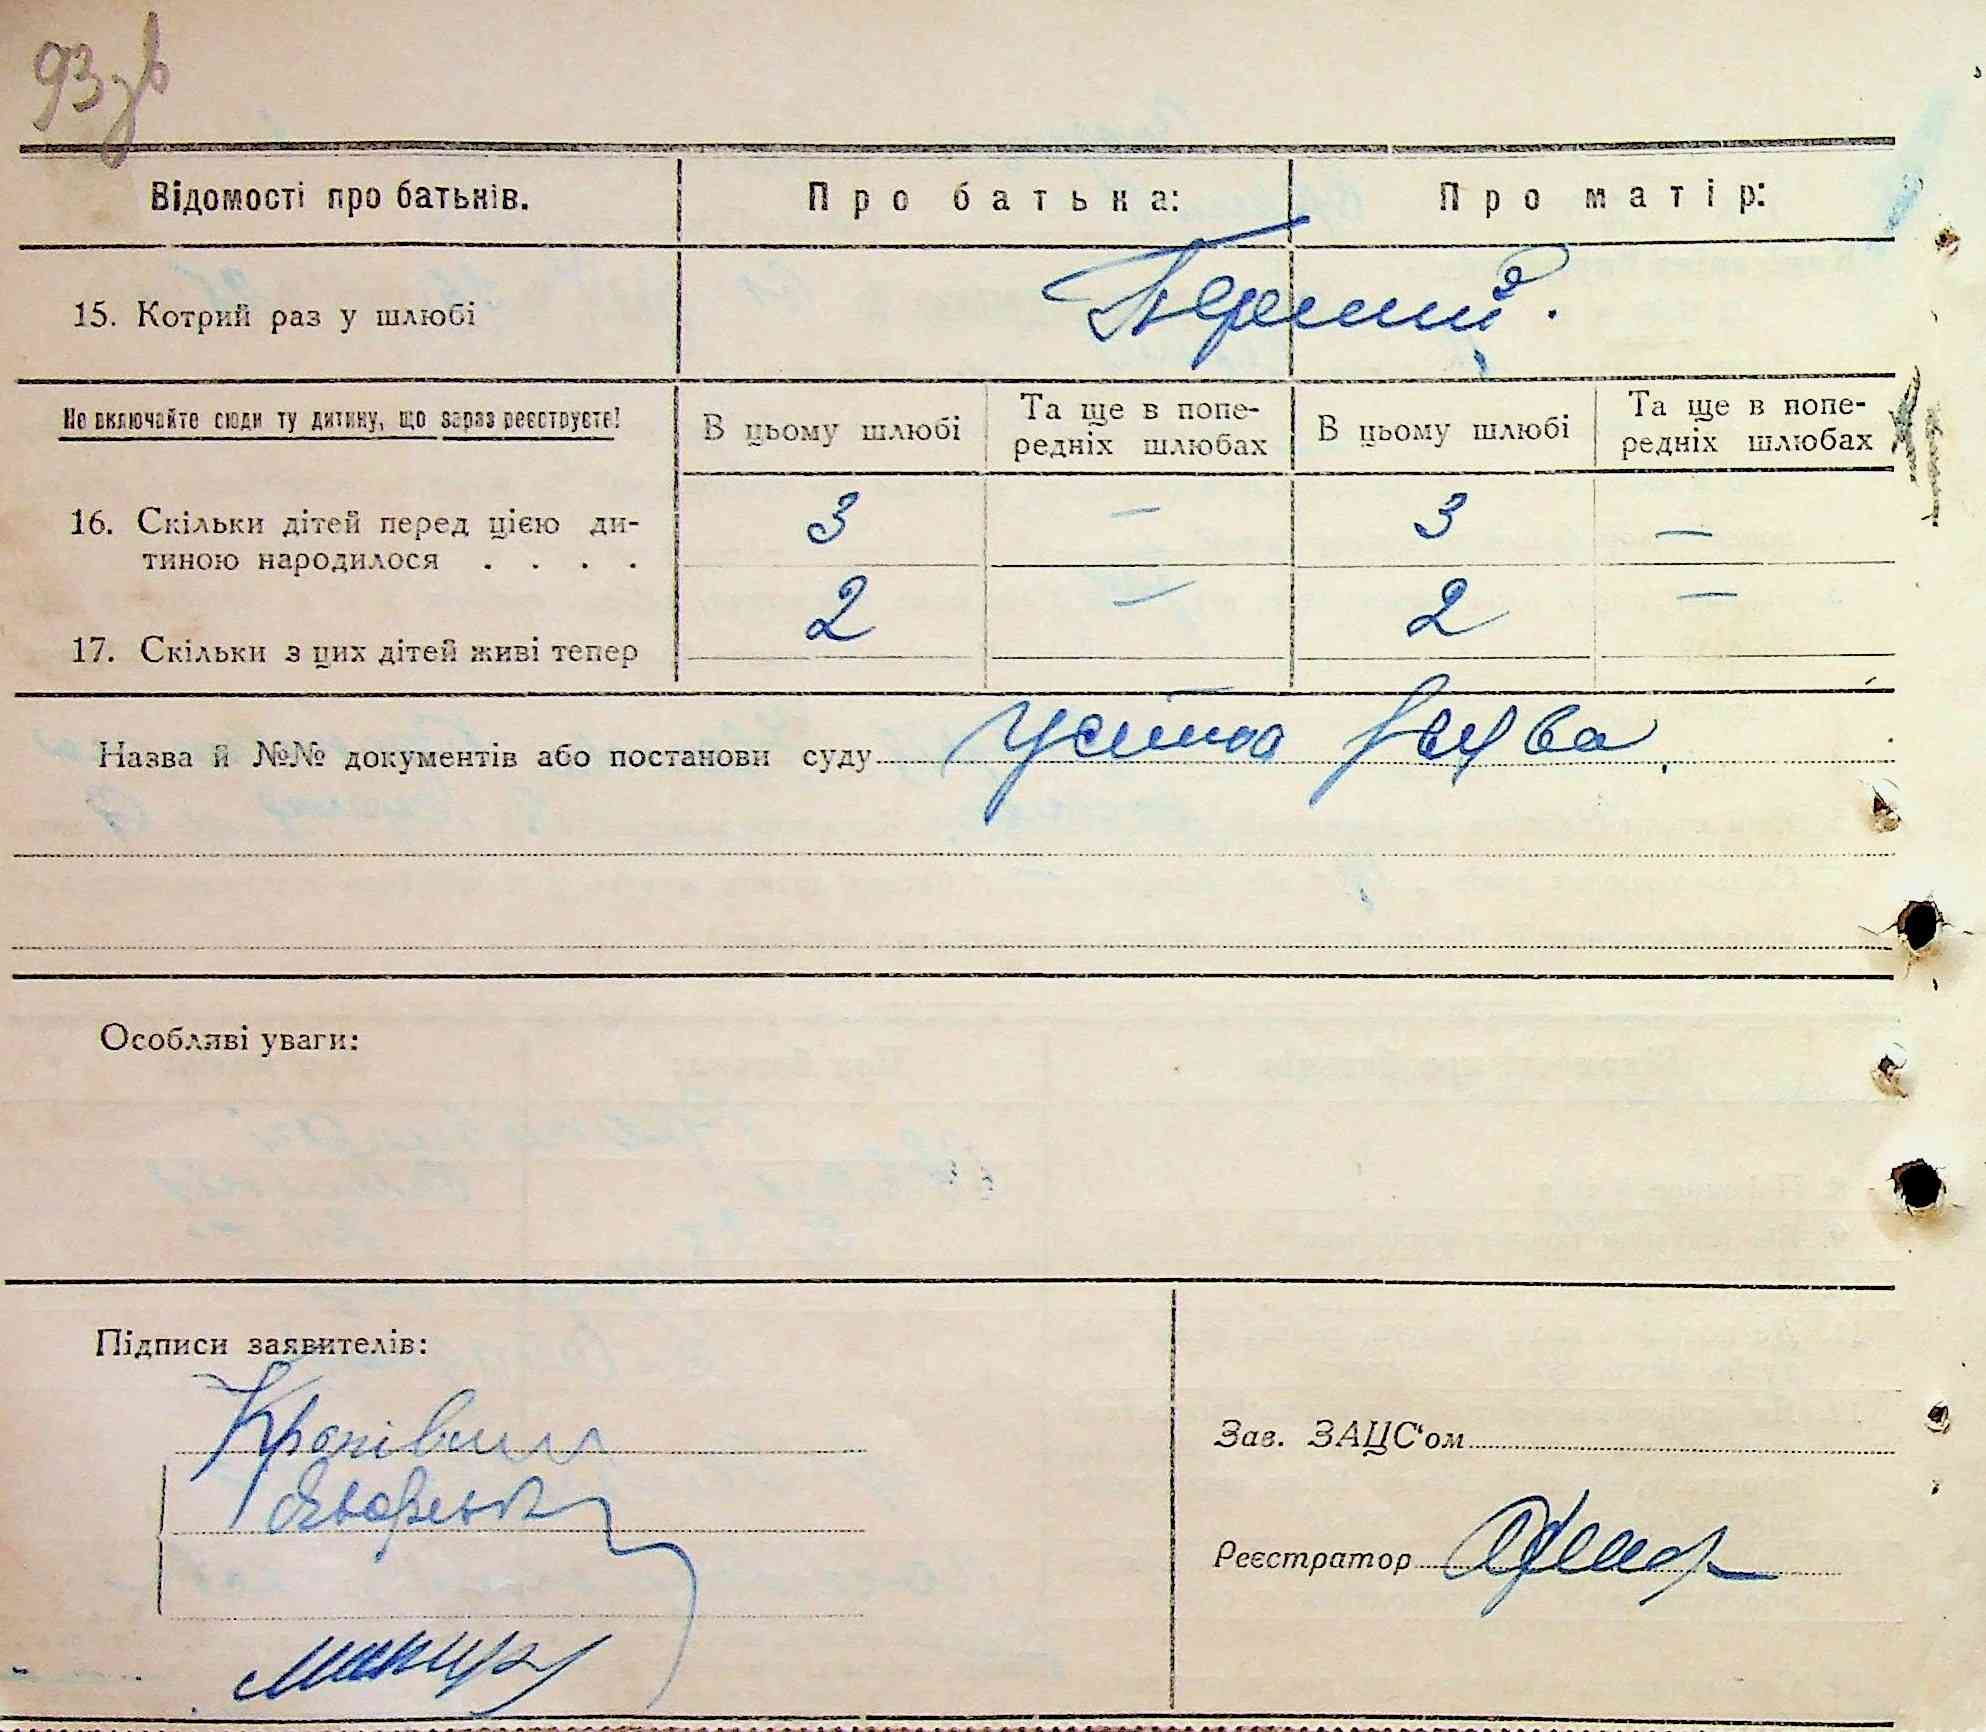 93 зв
Відомості про батьків. Про батька: Про матір:
15. Котрий раз у шлюбі Перший.
Не включайте сюди ту дитину, що зараз реєструєте! В цьому шлюбі Та ще в попе- В цьому шлюбі Та ще в попе-
редніх шлюбах редніх шлюбах
16. Скільки дітей перед цією ди- 3 — 3 —
тиною народилося . . . .
17. Скільки з цих дітей живі тепер 2 — 2 —
Назва й №№ документів або постанови суду Устна
Особляві уваги:
Підписи заявителів:
Зав. ЗАЦС'ом
Реєстратор